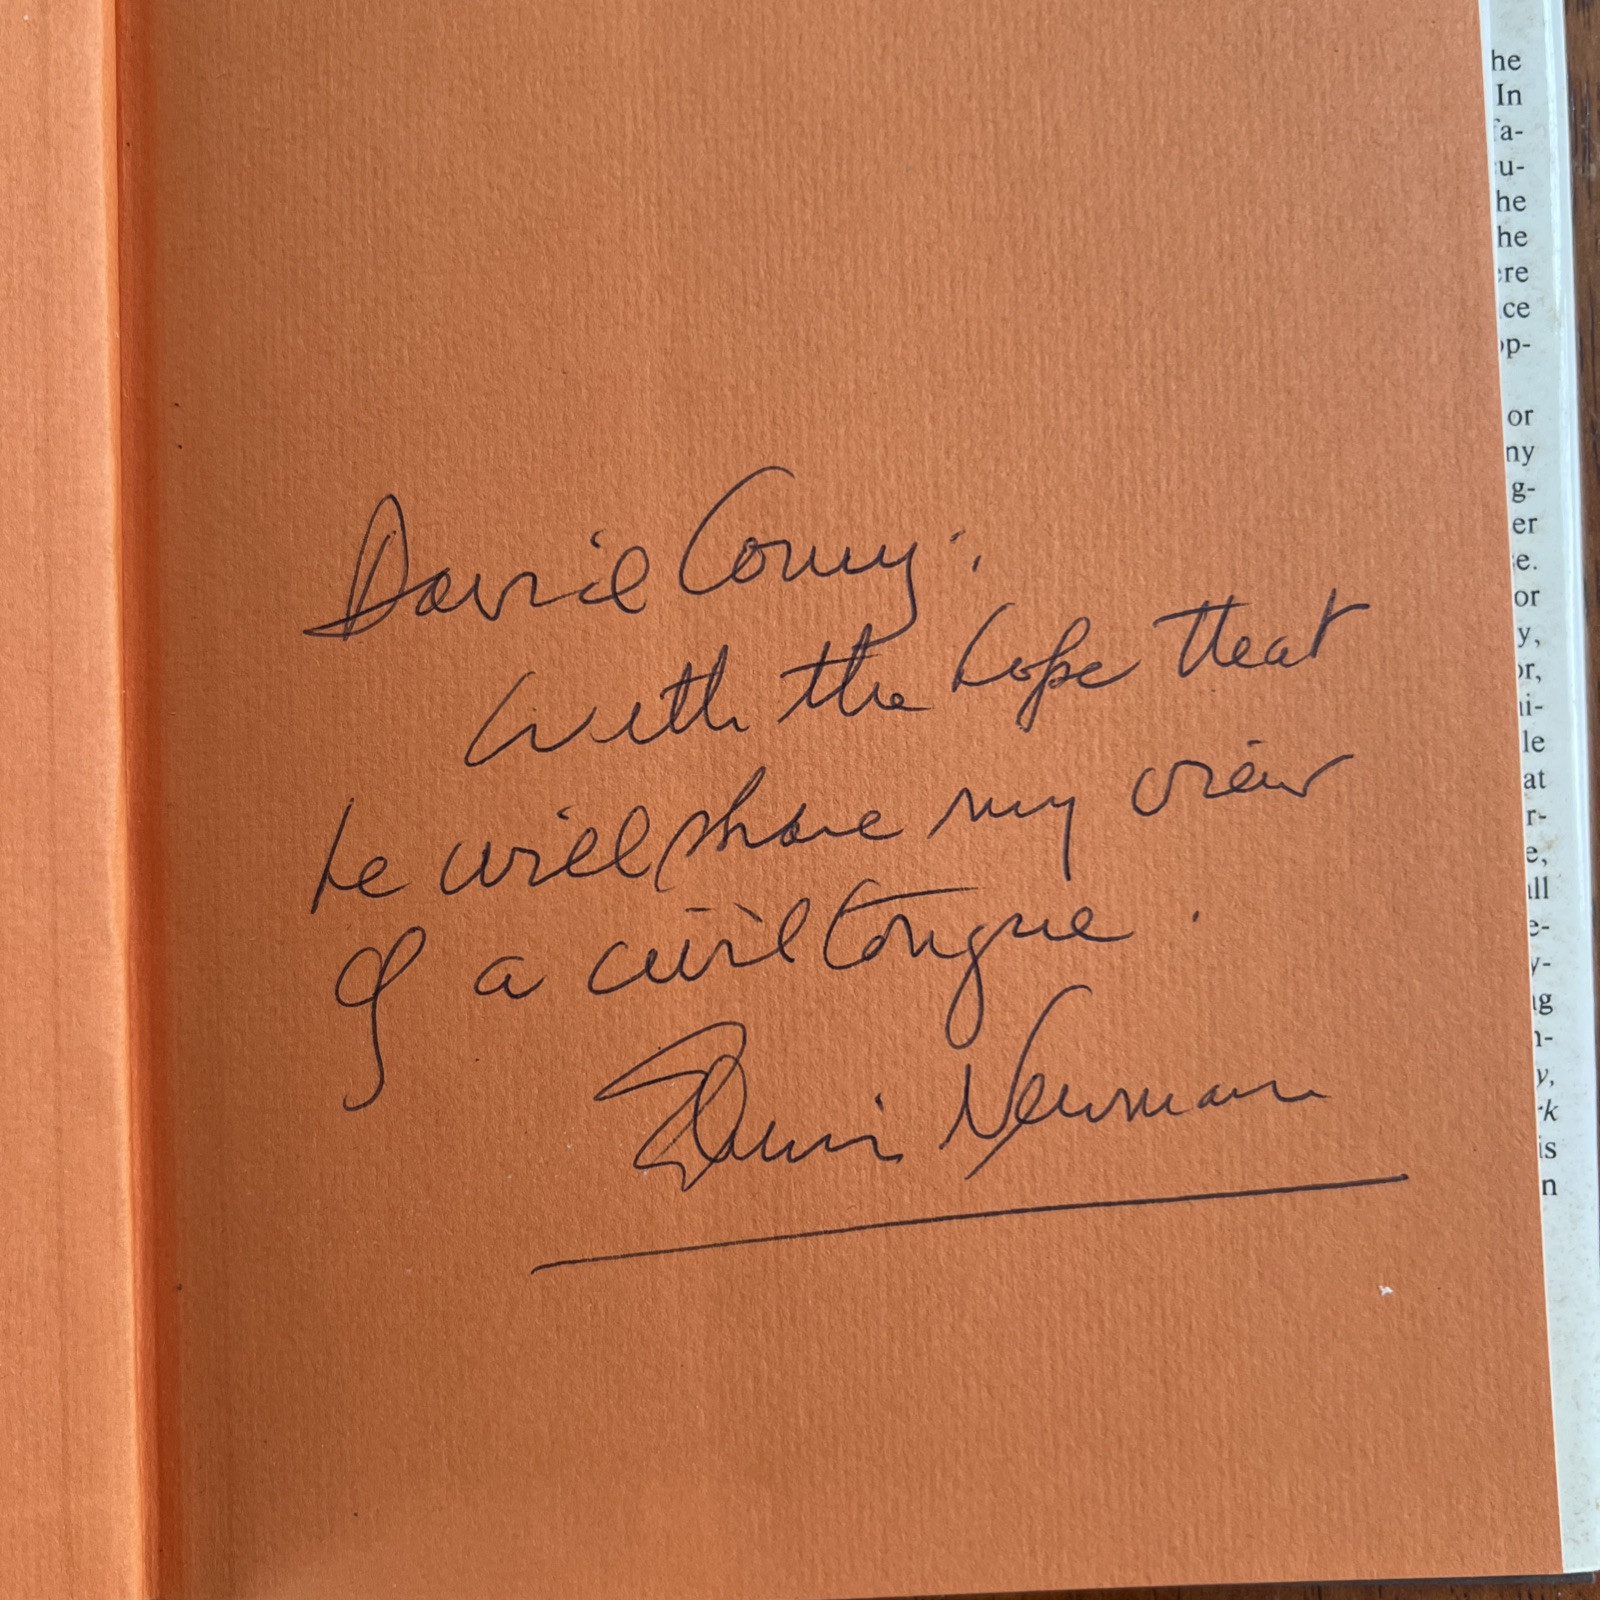 David Conny:
with the hope that
he will share my view
of a civil tongue.
Edwin Newman
he
In
fa-
u-
he
he
ere
ice
op-
or
ny
g-
er
e.
or
y,
or,
ni-
le
at
r-
e,
all
e-
y-
ng
n-
y,
rk
is
n